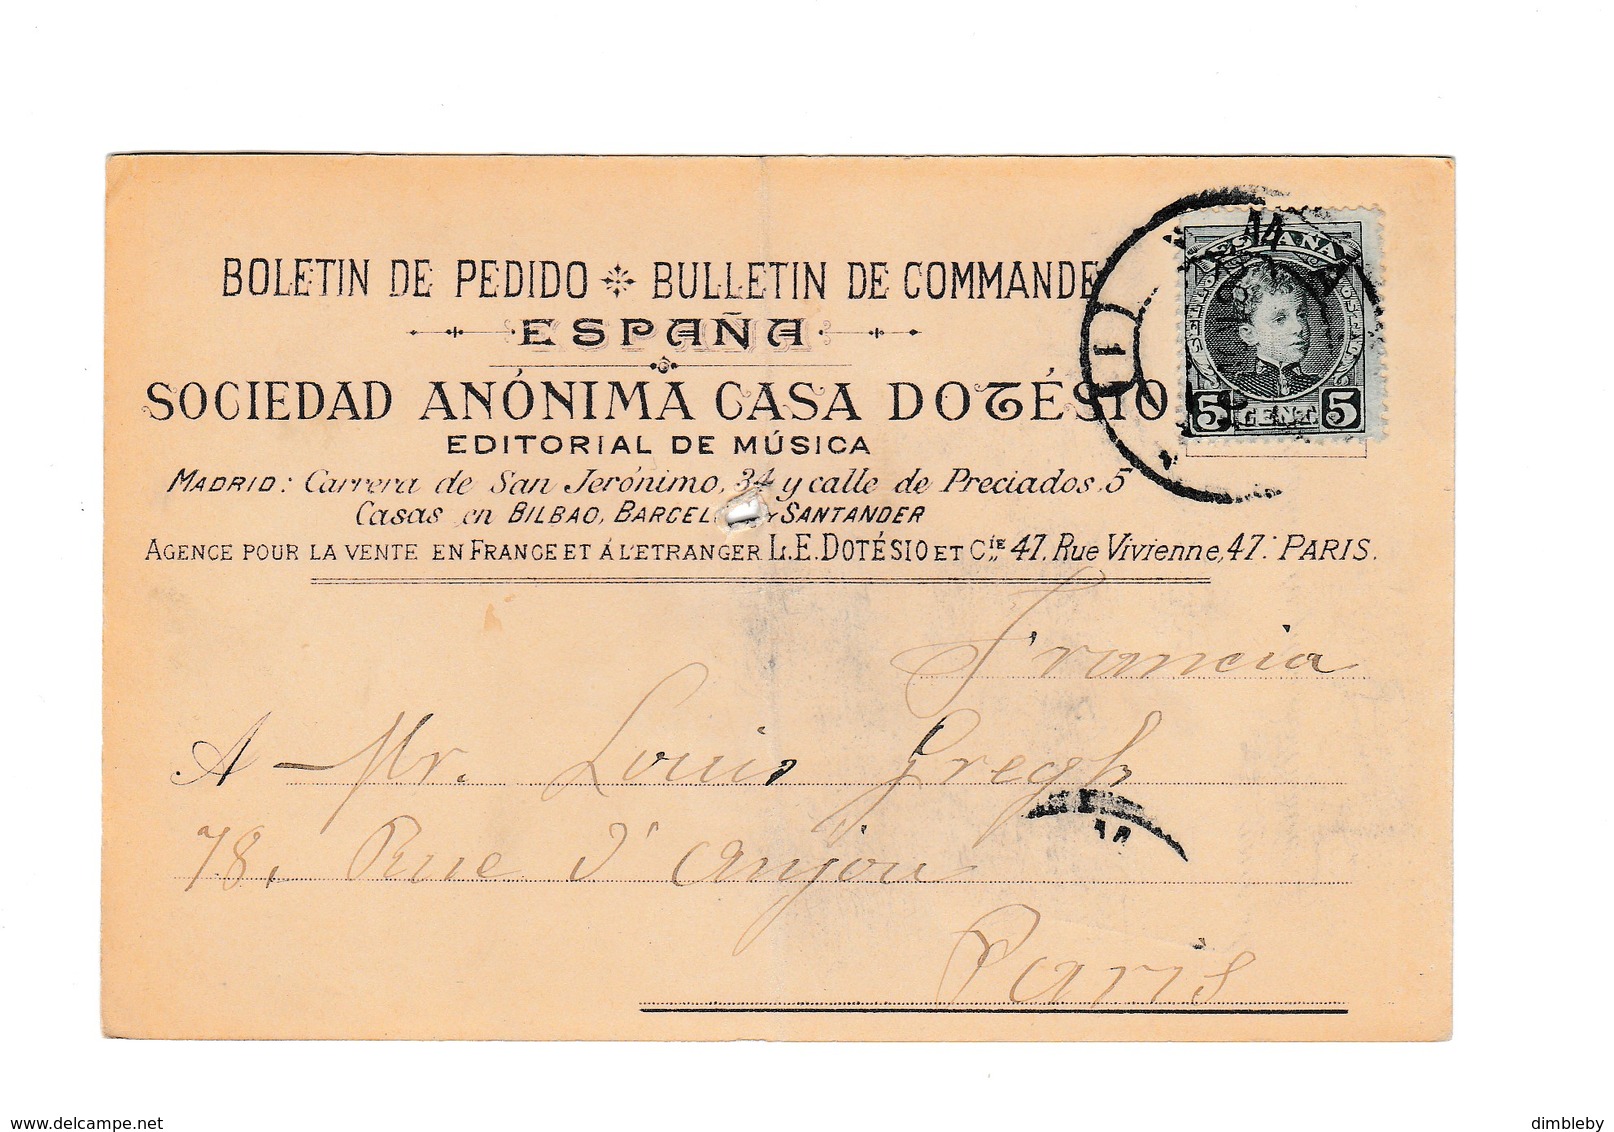 BOLETIN DE PEDIDO BULLETIN DE COMMANDE
ESPAÑA
SOCIEDAD ANÓNIMA CASA DOTÉSIO
EDITORIAL DE MÚSICA
MADRID: Carrera de San Jerónimo, 34 y calle de Preciados, 5
Casas en BILBAO, BARCEL Y SANTANDER
AGENCE POUR LA VENTE EN FRANCE ET Á L'ETRANGER L.E. DOTÉSIO ET Cie 47, Rue Vivienne, 47. PARIS.
ESPAÑA
5 CENT. 5
14
1
Francia
A Mr. Louis Gregh
78, Rue d'anjou
Paris
www.delcampe.net
dimbleby